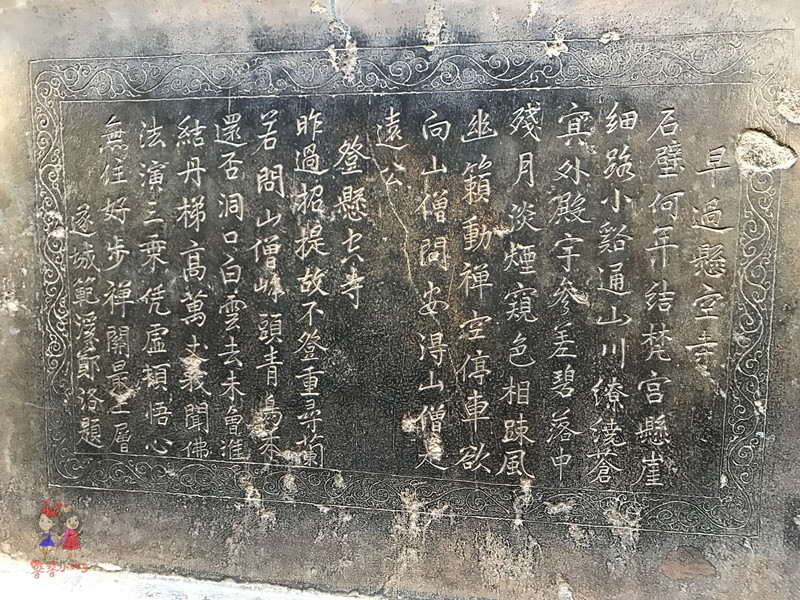 早過懸空寺
石壁何年結梵宮懸崖
細路小谿通山川繚繞蒼
冥外殿宇參差碧落中
殘月淡煙窺色相踈風
幽籟動禅空停車欲
向山僧問安得山僧是
遠公
登懸空寺
昨過招提故不登重尋蘭
若問山僧峰頭青鳥來
還否洞口白雲去未曾誰
結丹梯高萬丈我聞佛
法演三乗凭虛頓悟心
無住好步禅關最上層
遂城範溪鄭洛題